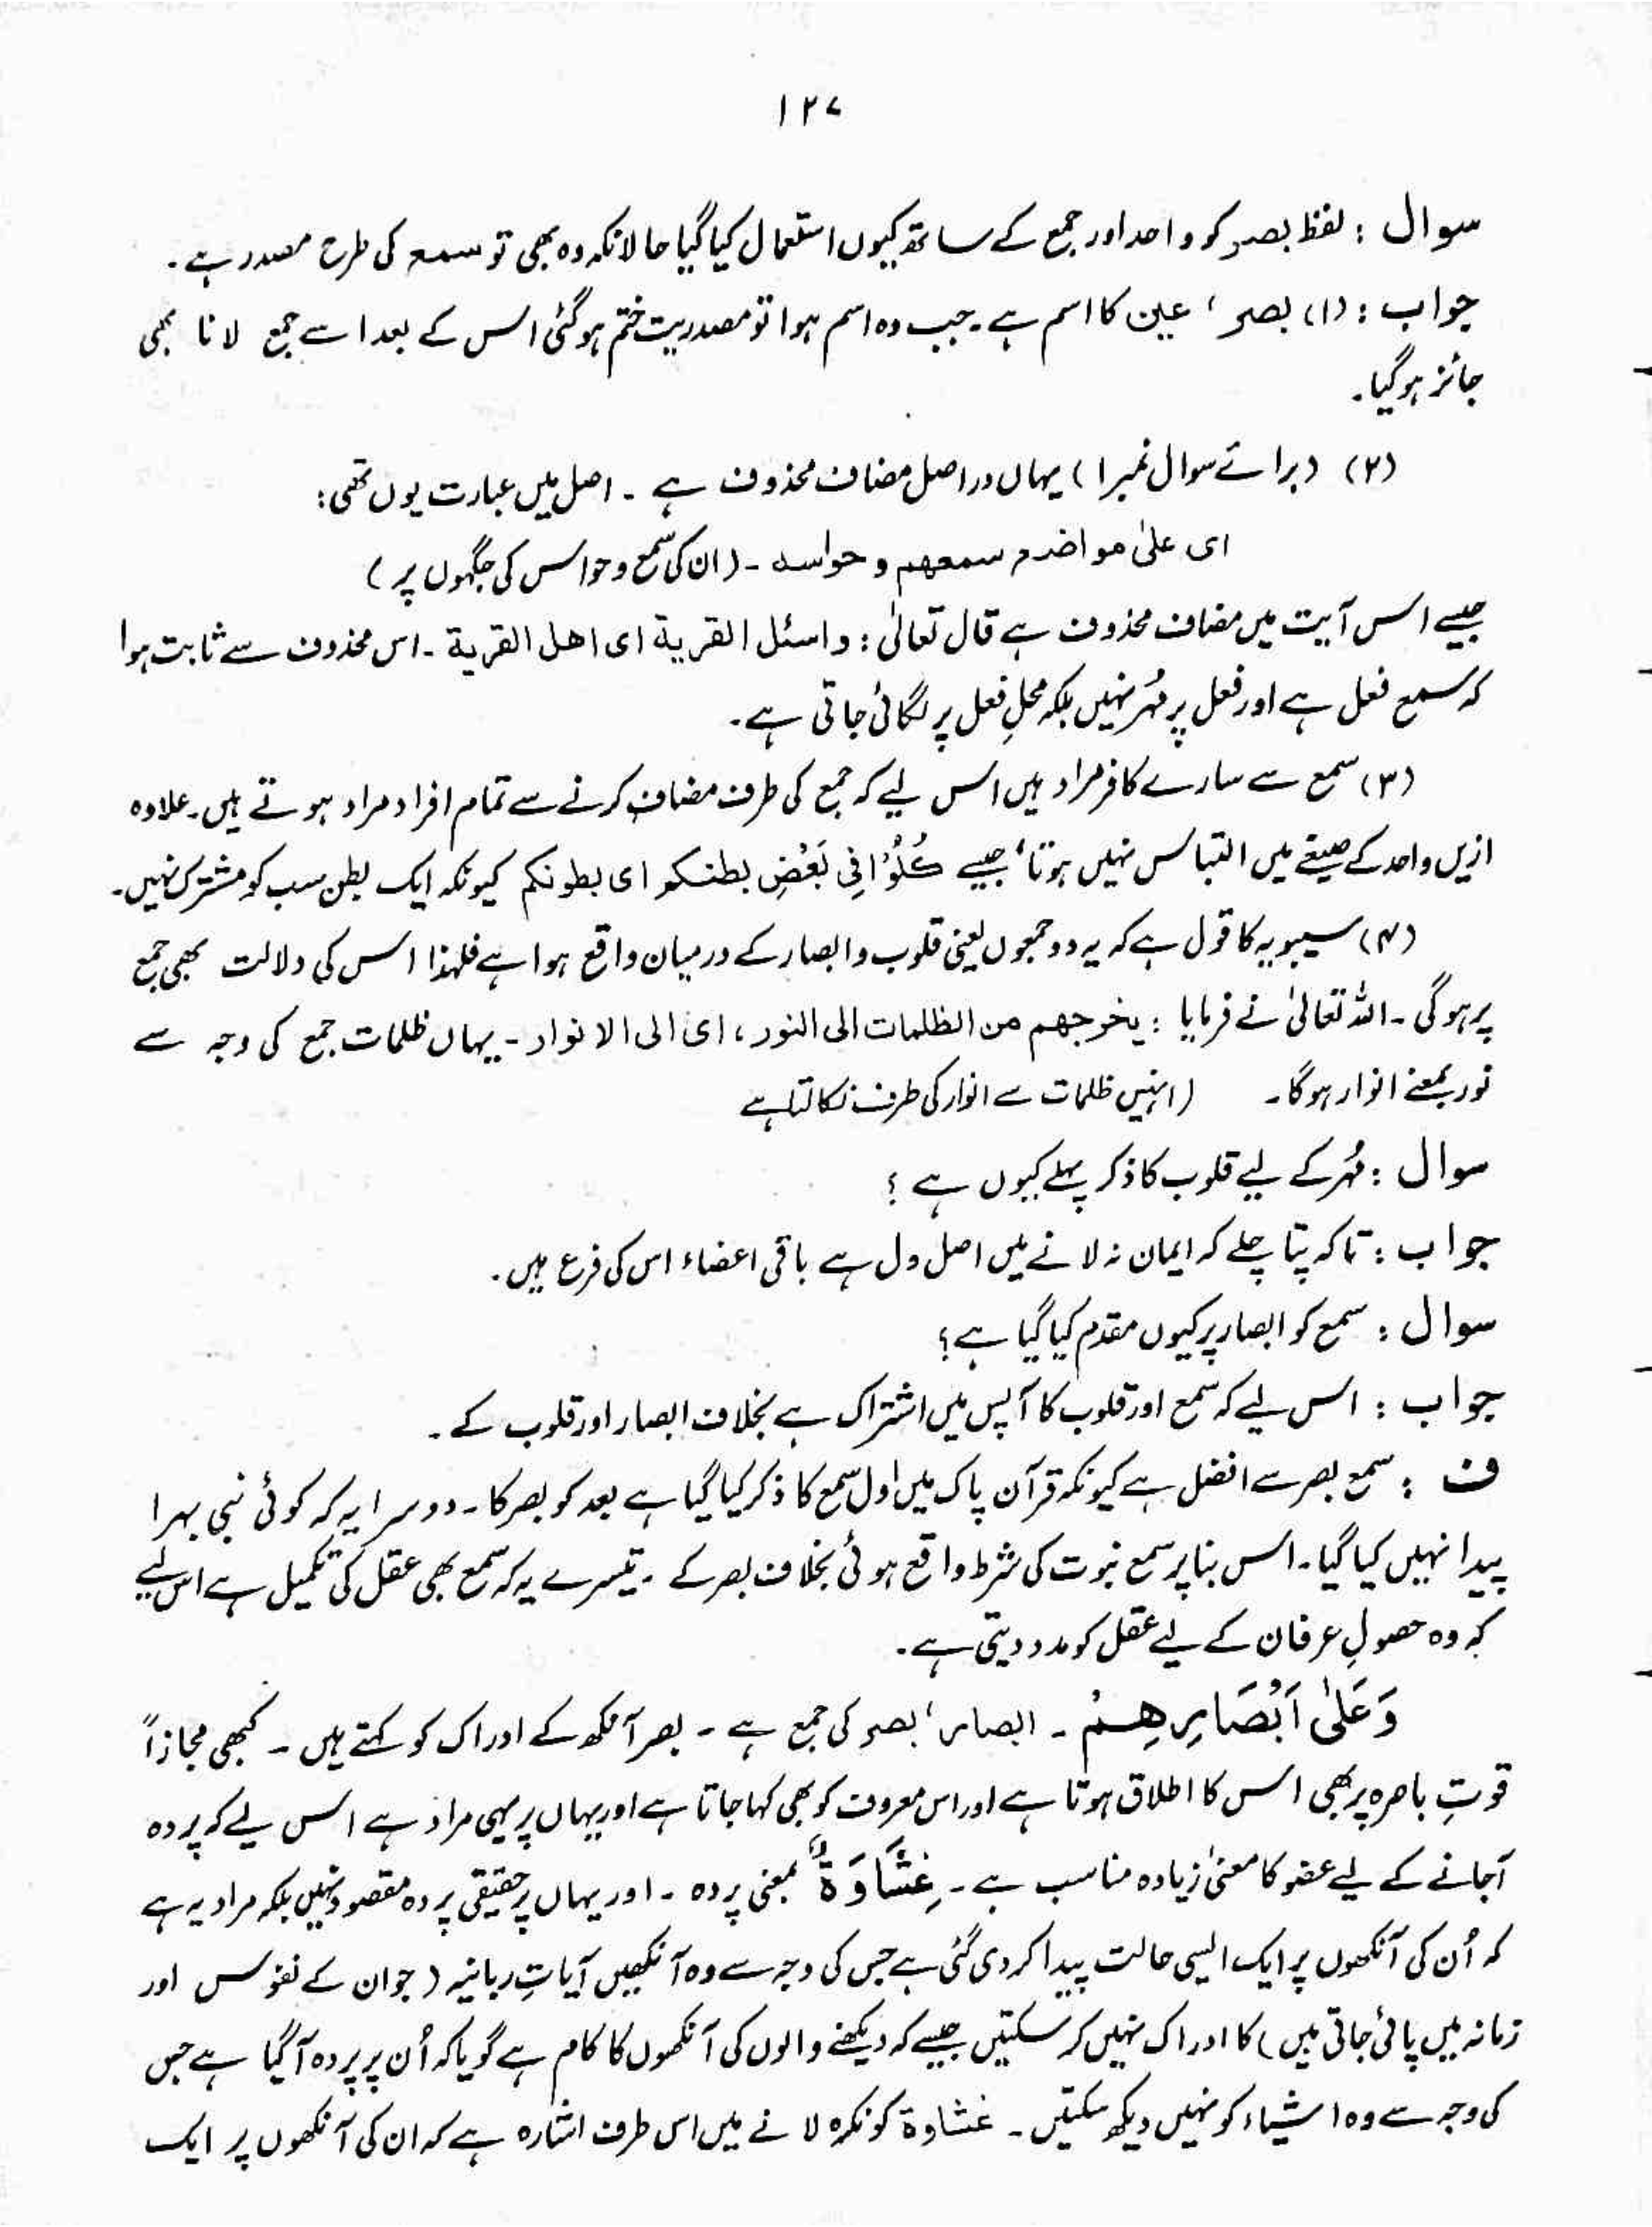 ۱۲۷
سوال : لفظ بصر کو واحد اور جمع کے ساتھ کیوں استعمال کیا گیا حالانکہ وہ بھی تو سمع کی طرح مصدر ہے ۔
جواب : (۱) بصر ، عین کا اسم ہے ۔ جب وہ اسم ہوا تو مصدریت ختم ہوگئی اس کے بعد اسے جمع لانا بھی
جائز ہوگیا ۔
(۲) (برائے سوال نمبر ۱) یہاں دراصل مضاف محذوف ہے ۔ اصل میں عبارت یوں تھی :
ای علیٰ مواضع سمعهم و حواسه ۔ (ان کی سمع و حواس کی جگہوں پر)
جیسے اس آیت میں مضاف محذوف ہے قال تعالیٰ : واسئل القریة ای اهل القریة ۔ اس محذوف سے ثابت ہوا
کہ سمع فعل ہے اور فعل پر مُہر نہیں بلکہ محلِ فعل پر لگائی جاتی ہے ۔
(۳) سمع سے سارے کافر مراد ہیں اس لیے کہ جمع کی طرف مضاف کرنے سے تمام افراد مراد ہوتے ہیں ۔ علاوہ
ازیں واحد کے صیغے میں التباس نہیں ہوتا ، جیسے کُلُوْا فِیْ بَعْضِ بطنکم ای بطونکم کیونکہ ایک بطن سب کو مشترک نہیں ۔
(۴) سیبویہ کا قول ہے کہ یہ دو جمعوں یعنی قلوب و ابصار کے درمیان واقع ہوا ہے فلہٰذا اس کی دلالت بھی جمع
پر ہوگی ۔ اللہ تعالیٰ نے فرمایا : یخرجهم من الظلمات الی النور ، ای الی الانوار ۔ یہاں ظلمات جمع کی وجہ سے
نور بمعنے انوار ہوگا ۔ (انہیں ظلمات سے انوار کی طرف نکالتا ہے
سوال : مُہر کے لیے قلوب کا ذکر پہلے کیوں ہے ؟
جواب : تاکہ پتا چلے کہ ایمان نہ لانے میں اصل دل ہے باقی اعضاء اس کی فرع ہیں ۔
سوال : سمع کو ابصار پر کیوں مقدم کیا گیا ہے ؟
جواب : اس لیے کہ سمع اور قلوب کا آپس میں اشتراک ہے بخلاف ابصار اور قلوب کے ۔
ف : سمع بصر سے افضل ہے کیونکہ قرآن پاک میں اول سمع کا ذکر کیا گیا ہے بعد کو بصر کا ۔ دوسرا یہ کہ کوئی نبی بہرا
پیدا نہیں کیا گیا ۔ اس بنا پر سمع نبوت کی شرط واقع ہوئی بخلاف بصر کے ۔ تیسرے یہ کہ سمع بھی عقل کی تکمیل ہے اس لیے
کہ وہ حصولِ عرفان کے لیے عقل کو مدد دیتی ہے ۔
وَعَلٰی اَبْصَارِهِمْ ۔ ابصار ، بصر کی جمع ہے ۔ بصر آنکھ کے ادراک کو کہتے ہیں ۔ کبھی مجازاً
قوتِ باصرہ پر بھی اس کا اطلاق ہوتا ہے اور اس معروف کو بھی کہا جاتا ہے اور یہاں پر یہی مراد ہے اس لیے کہ پردہ
آجانے کے لیے عضو کا معنیٰ زیادہ مناسب ہے ۔ غِشَاوَةٌ بمعنی پردہ ۔ اور یہاں پر حقیقی پردہ مقصود نہیں بلکہ مراد یہ ہے
کہ اُن کی آنکھوں پر ایک ایسی حالت پیدا کر دی گئی ہے جس کی وجہ سے وہ آنکھیں آیاتِ ربانیہ (جو ان کے نفوس اور
زمانہ میں پائی جاتی ہیں) کا ادراک نہیں کر سکتیں جیسے کہ دیکھنے والوں کی آنکھوں کا کام ہے گویا کہ اُن پر پردہ آگیا ہے جس
کی وجہ سے وہ اشیاء کو نہیں دیکھ سکتیں ۔ غشاوة کو نکرہ لانے میں اس طرف اشارہ ہے کہ ان کی آنکھوں پر ایک